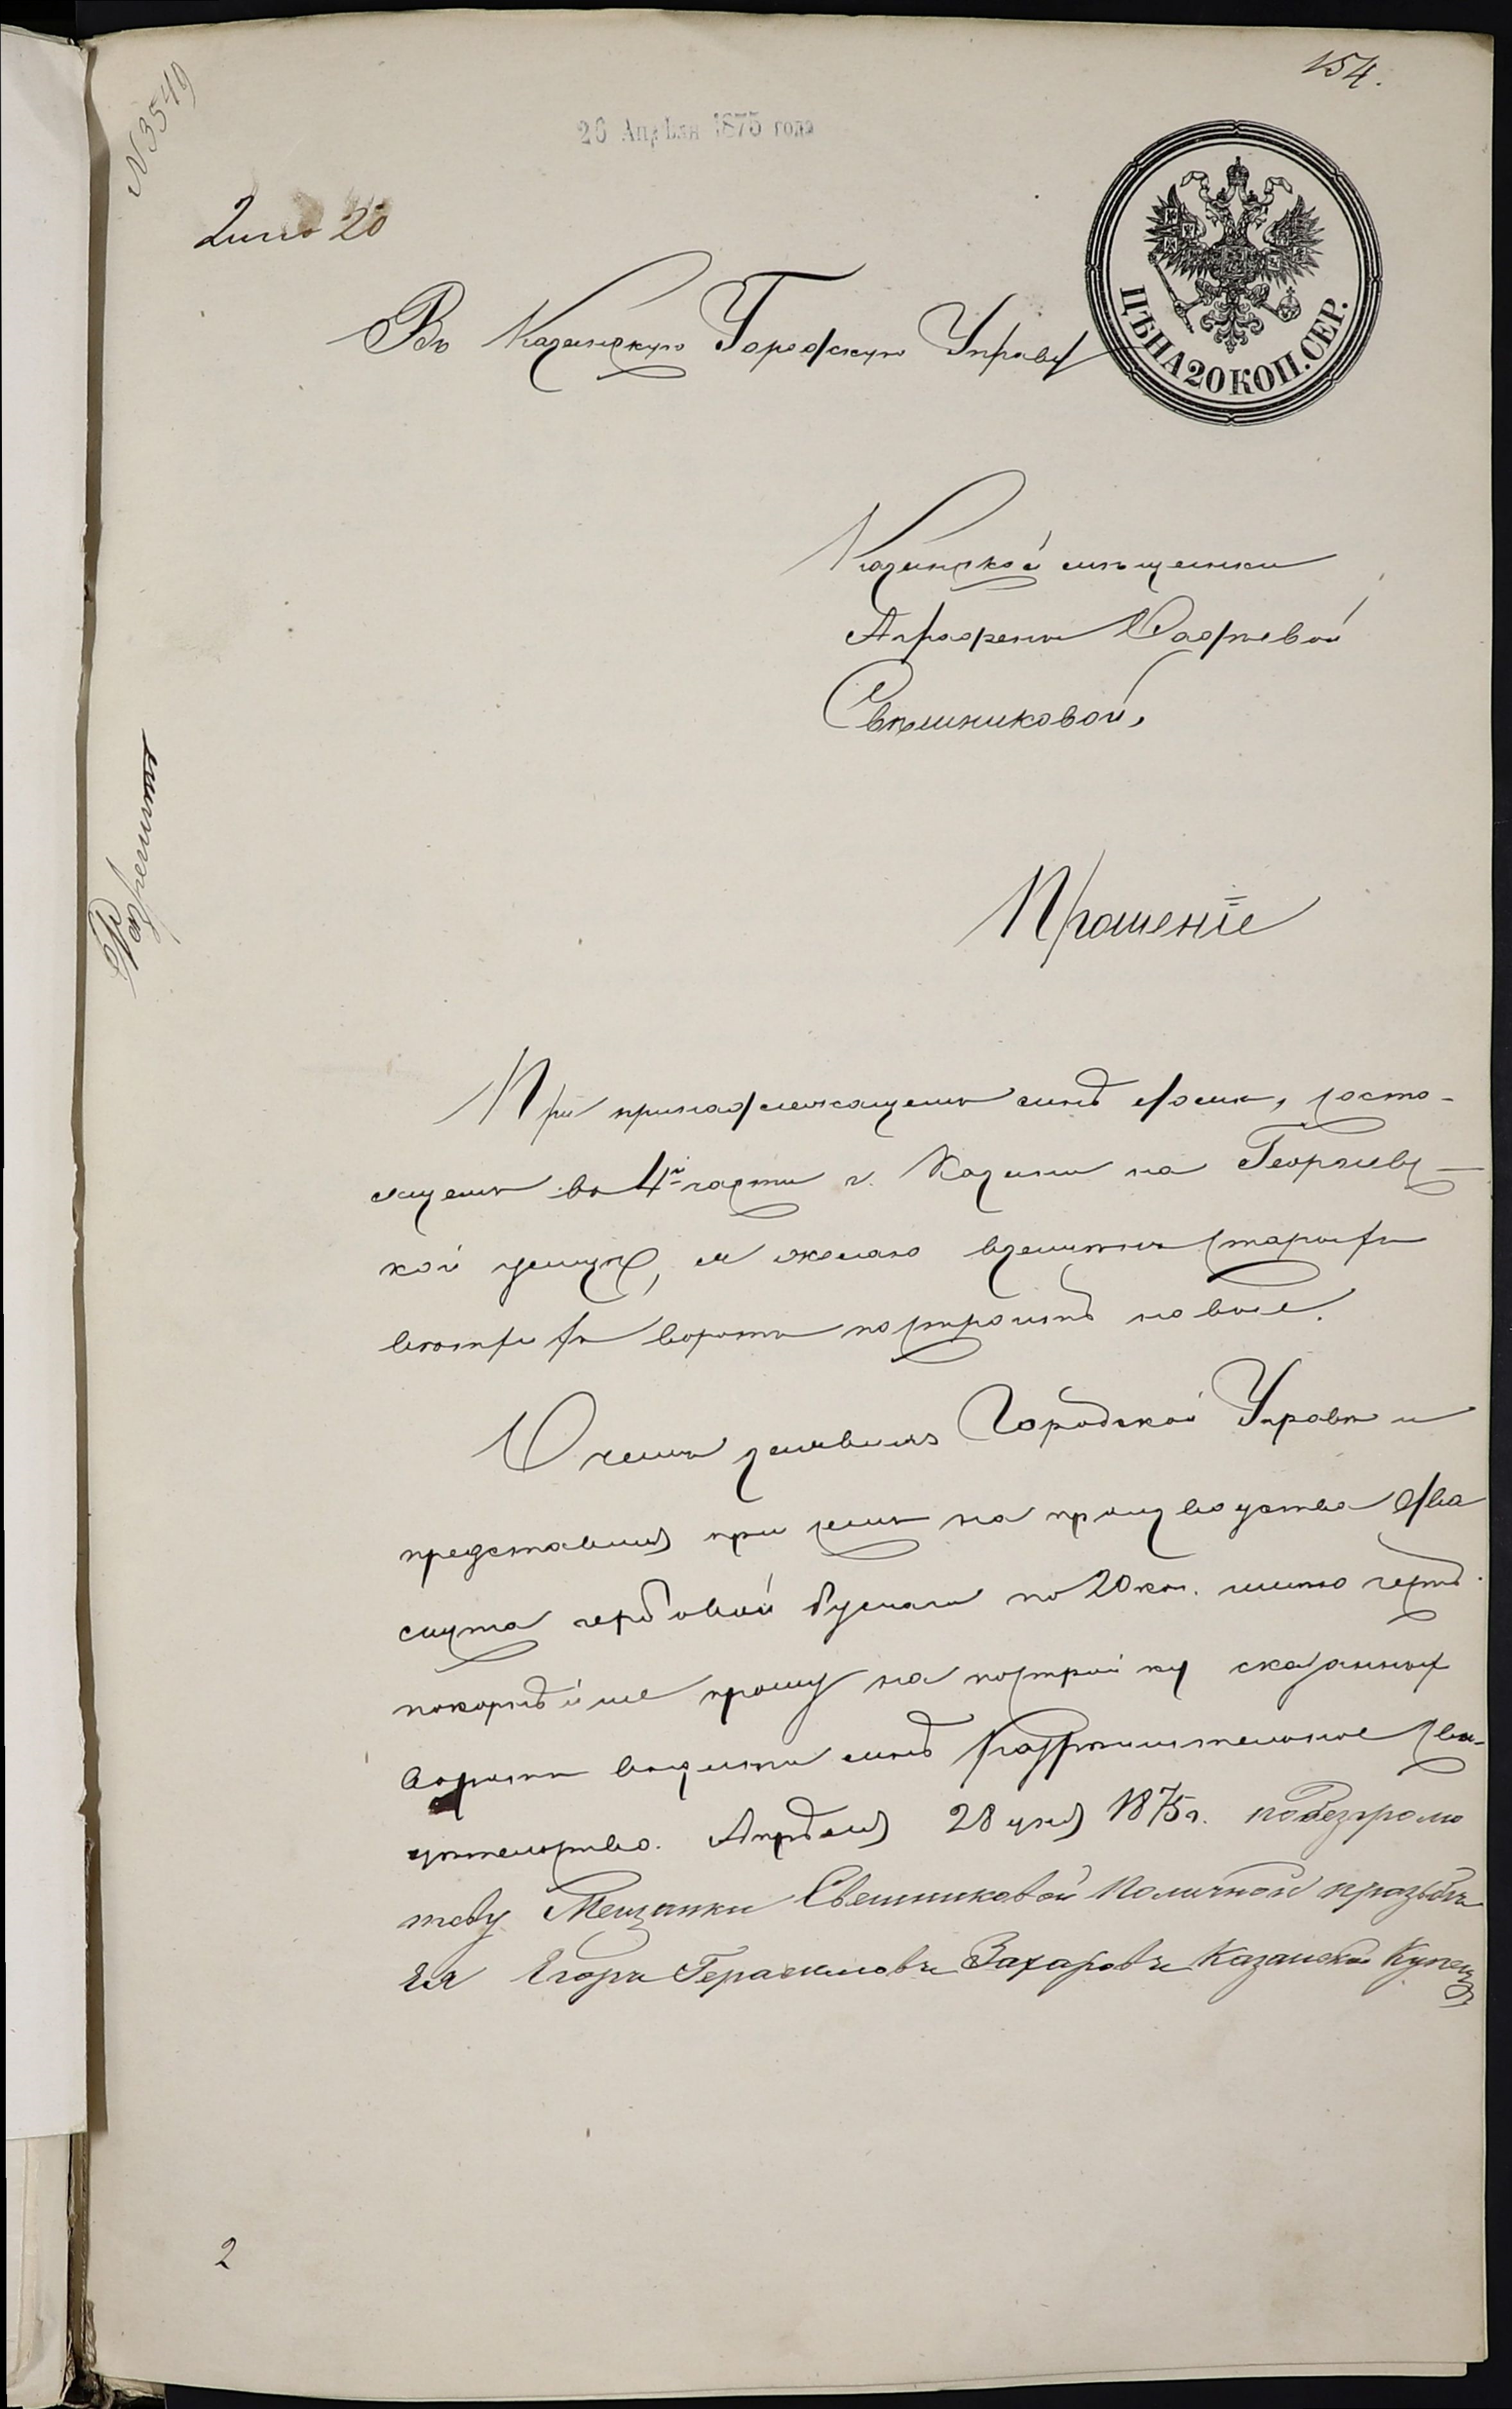 154.
N 3549
26 Апрѣля 1875 года
20
ЦѢНА 20 КОП. СЕР.
Въ Казанскую Городскую Управу
Казанской мѣщанки
Аграфены
Свѣшниковой,
Разрешить
Прошеніе
При принадлежащемъ мнѣ домѣ, состо-
ящемъ въ 4й части г. Казани на Георгіевс-
кой улицѣ, я желаю взамѣнъ старыхъ
ветхихъ воротъ построить новые.
О чемъ заявляя Городской Управѣ и
представляя при семъ на производство два
листа гербовой бумаги по 20 коп. имѣю честь
покорнѣйше прошу на постройку сказанныхъ
воротъ выдать мнѣ разрѣшительное сви-
дѣтельство. Апрѣля 28 дня 1875 г. по безграмо
тству Мещанки Свешниковой поличной прозьбѣ
ея Егоръ Герасимовъ Захаровъ Казанской Купецъ
2